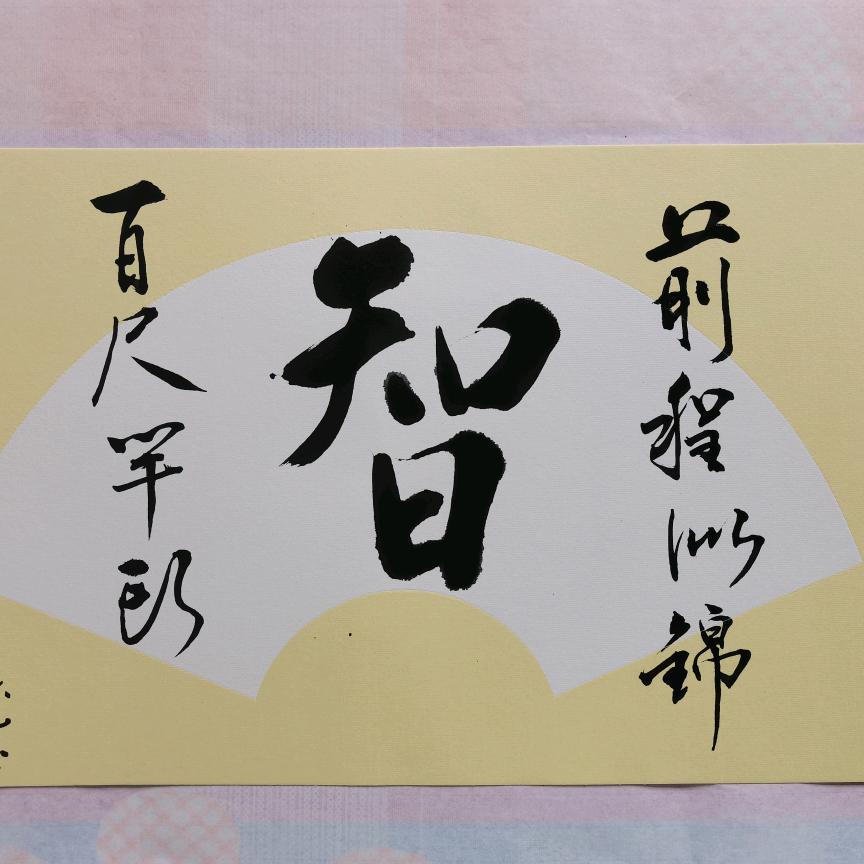 前程似錦
智
百尺竿頭